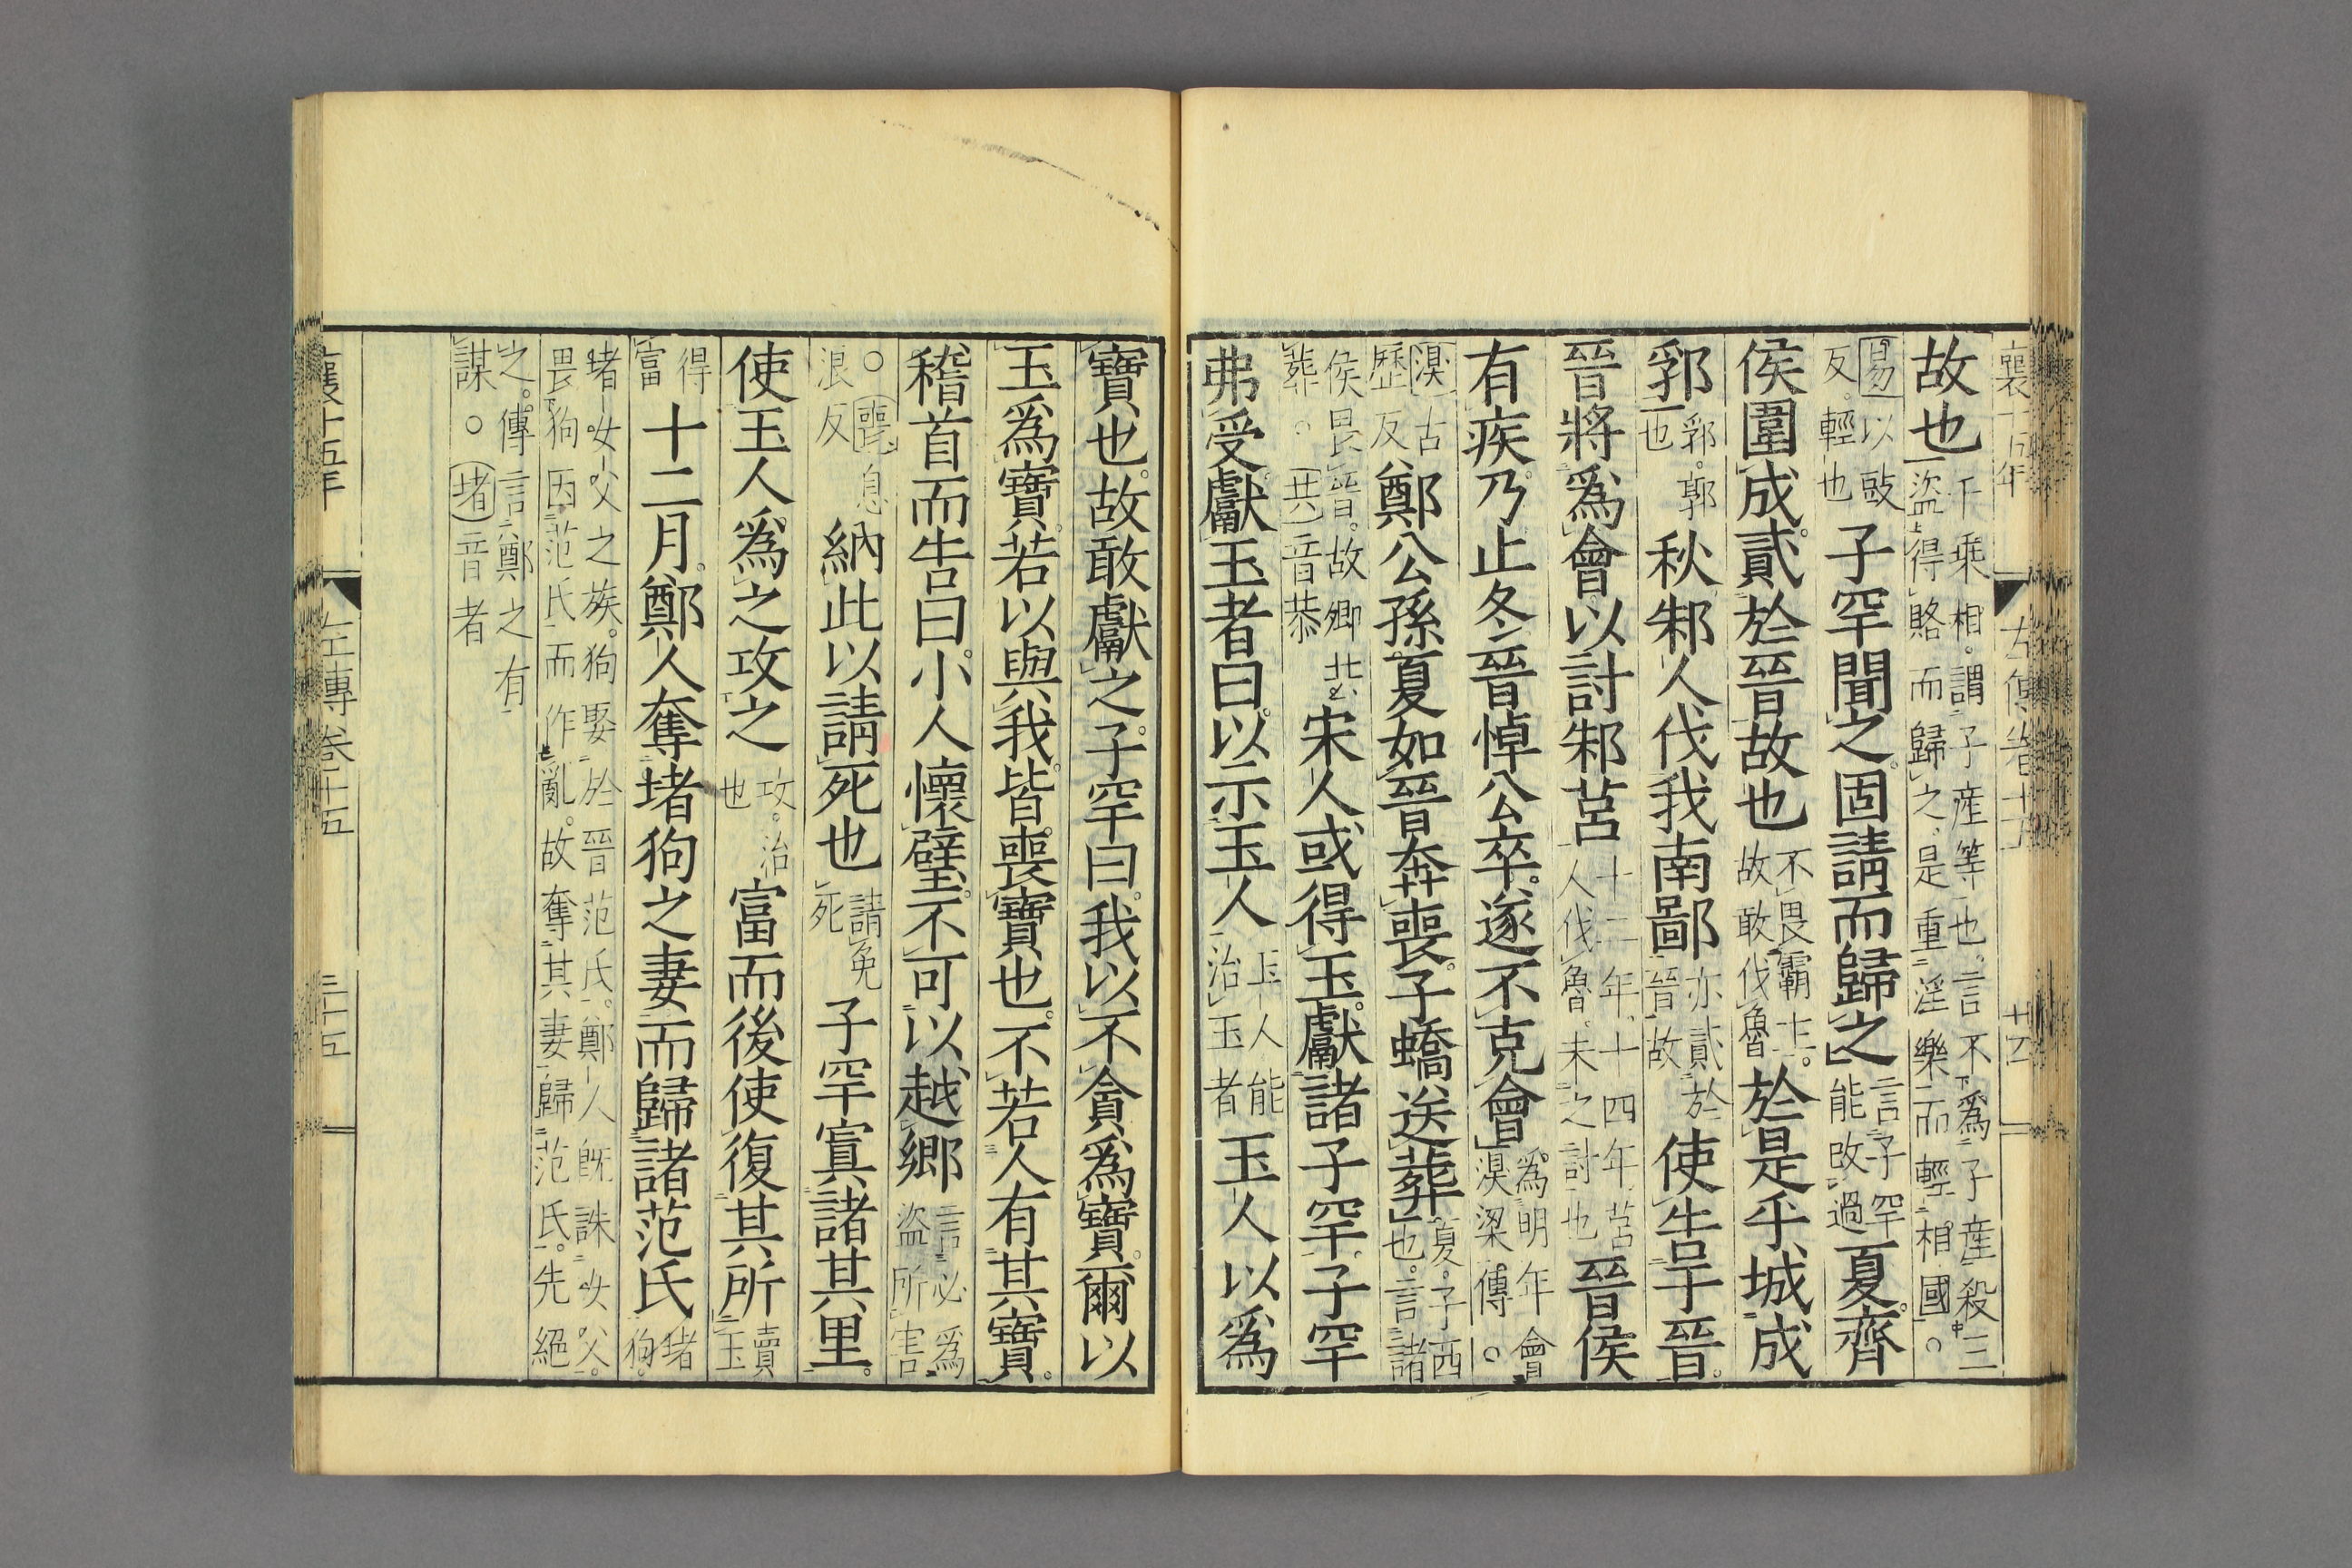 襄十五年 左傳卷十五
故也千乗相。謂子産等也。言不爲子産殺三盜得賂而歸之。是重淫樂而輕相國。○
易以豉反。輕也子罕聞之。固請而歸之言子罕能改過夏。齊
侯圍成。貳於晉故也不畏霸主。故敢伐魯於是乎城成
郛郛。郭也秋邾人伐我南鄙亦貳於晉故使告于晉。
晉將爲會以討邾莒十二年十四年莒人伐魯。未之討也晉侯
有疾乃止冬晉悼公卒。遂不克會爲明年會湨梁傳。○
湨古歷反鄭公孫夏如晉奔喪。子蟜送葬夏。子西也。言諸
侯畏晉。故卿共葬。共音恭宋人或得玉。獻諸子罕。子罕
弗受。獻玉者曰。以示玉人玉人能治玉者玉人以爲
寶也。故敢獻之。子罕曰。我以不貪爲寶。爾以
玉爲寶。若以與我。皆喪寶也。不若人有其寶。
稽首而告曰。小人懷璧。不可以越鄉言必爲盜所害
○喪息浪反納此以請死也請免死子罕寘諸其里。
使玉人爲之攻之攻。治也富而後使復其所賣玉
得富十二月。鄭人奪堵狗之妻而歸諸范氏堵狗。
堵女父之族。狗娶於晉范氏。鄭人既誅女父。畏狗因范氏而作亂。故奪其妻歸范氏。先絕
之。傳言鄭之有謀。○堵音者
襄十五年 左傳卷十五